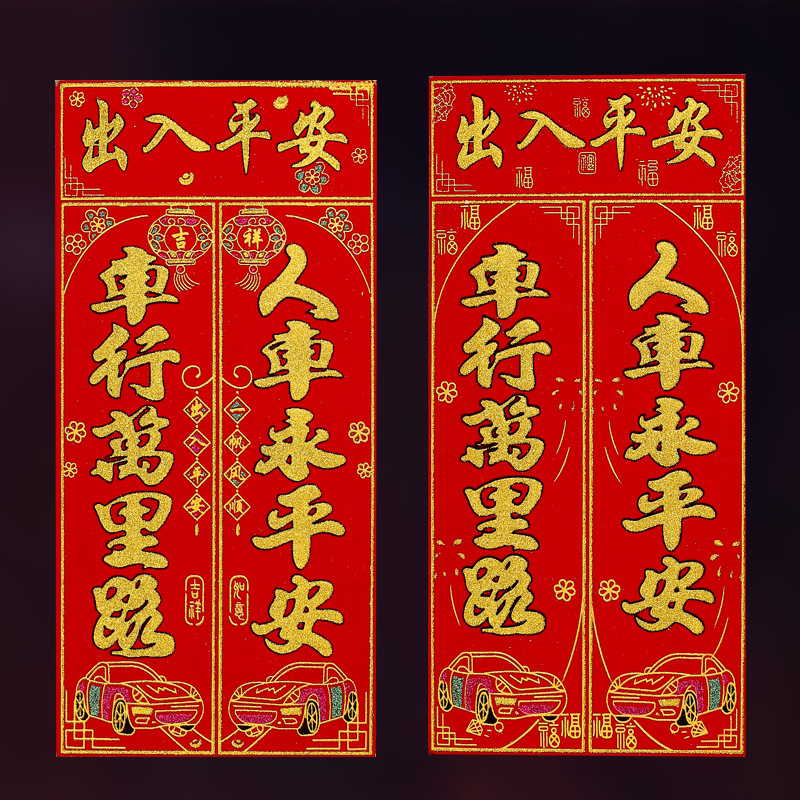 出入平安
車行萬里路
人車永平安
吉
祥
出入平安
一帆風順
吉祥
如意
出入平安
福
福
福
福
車行萬里路
人車永平安
福
福
福
福
福
福
福
福